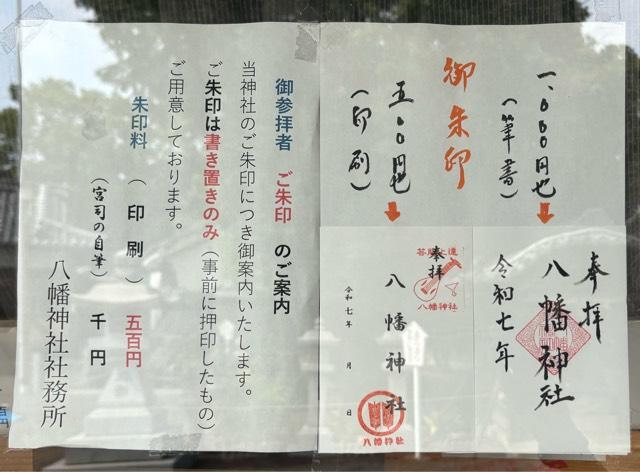 一、〇〇〇円也
(筆書)
御朱印
五〇〇円也
(印刷)
奉拝
八幡神社
令和七年
奉拝
八幡神社
八幡神社
令和七年 月 日
八幡神社
御参拝者 ご朱印 のご案内
当神社のご朱印につき御案内いたします。
ご朱印は書き置きのみ(事前に押印したもの)
ご用意しております。
朱印料 (印刷) 五百円
(宮司の自筆) 千円
八幡神社社務所